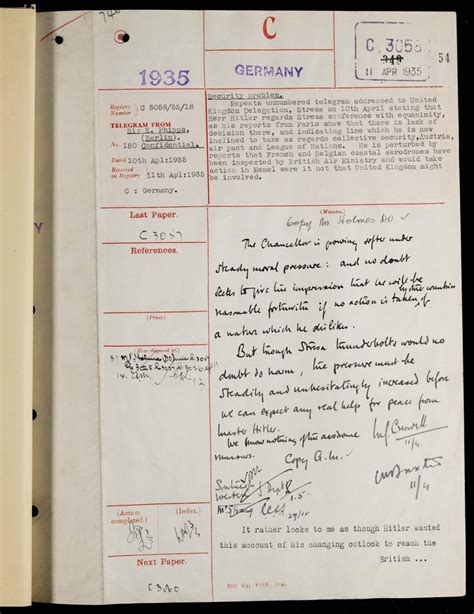 C
C 3058
349
11 APR 1935
54
1935
GERMANY
Registry Number
C 3058/55/18
TELEGRAM FROM
Sir E. Phipps,
(Berlin).
No. 150 Confidential.
Dated 10th Apl:1935
Received in Registry 11th Apl:1935
C : Germany.
Security problem.
Repeats unnumbered telegram addressed to United
Kingdom Delegation, Stresa on 10th April stating that
Herr Hitler regards Stresa conference with equanimity,
as his reports from Paris show that there is lack of
decision there, and indicating line which he is now
inclined to take as regards collective security, Austria,
air pact and League of Nations. He is perturbed by
reports that French and Belgian coastal aerodromes have
been inspected by British Air Ministry and would take
action in Memel were it not that United Kingdom might
be involved.
Last Paper.
C 3057
References.
(Print.)
(How disposed of.)
(Action completed.)
(Index.)
Next Paper.
C 3060
(Minutes.)
Copy Mr. Holmes D.O.
The Chancellor is growing softer under
steady moral pressure: and no doubt
seeks to give the impression that he will be
reasonable if no action is taken of
a nature which he dislikes.
But though Stresa thunderbolts would no
doubt do harm, the pressure must be
steadily and unhesitatingly increased before
we can expect any real help for peace from
Master Hitler.
We know nothing of the aerodrome
rumours.
11/4.
Copy A.M.
11/4
1.5.
It rather looks to me as though Hitler wanted
this account of his changing outlook to reach the
British ...